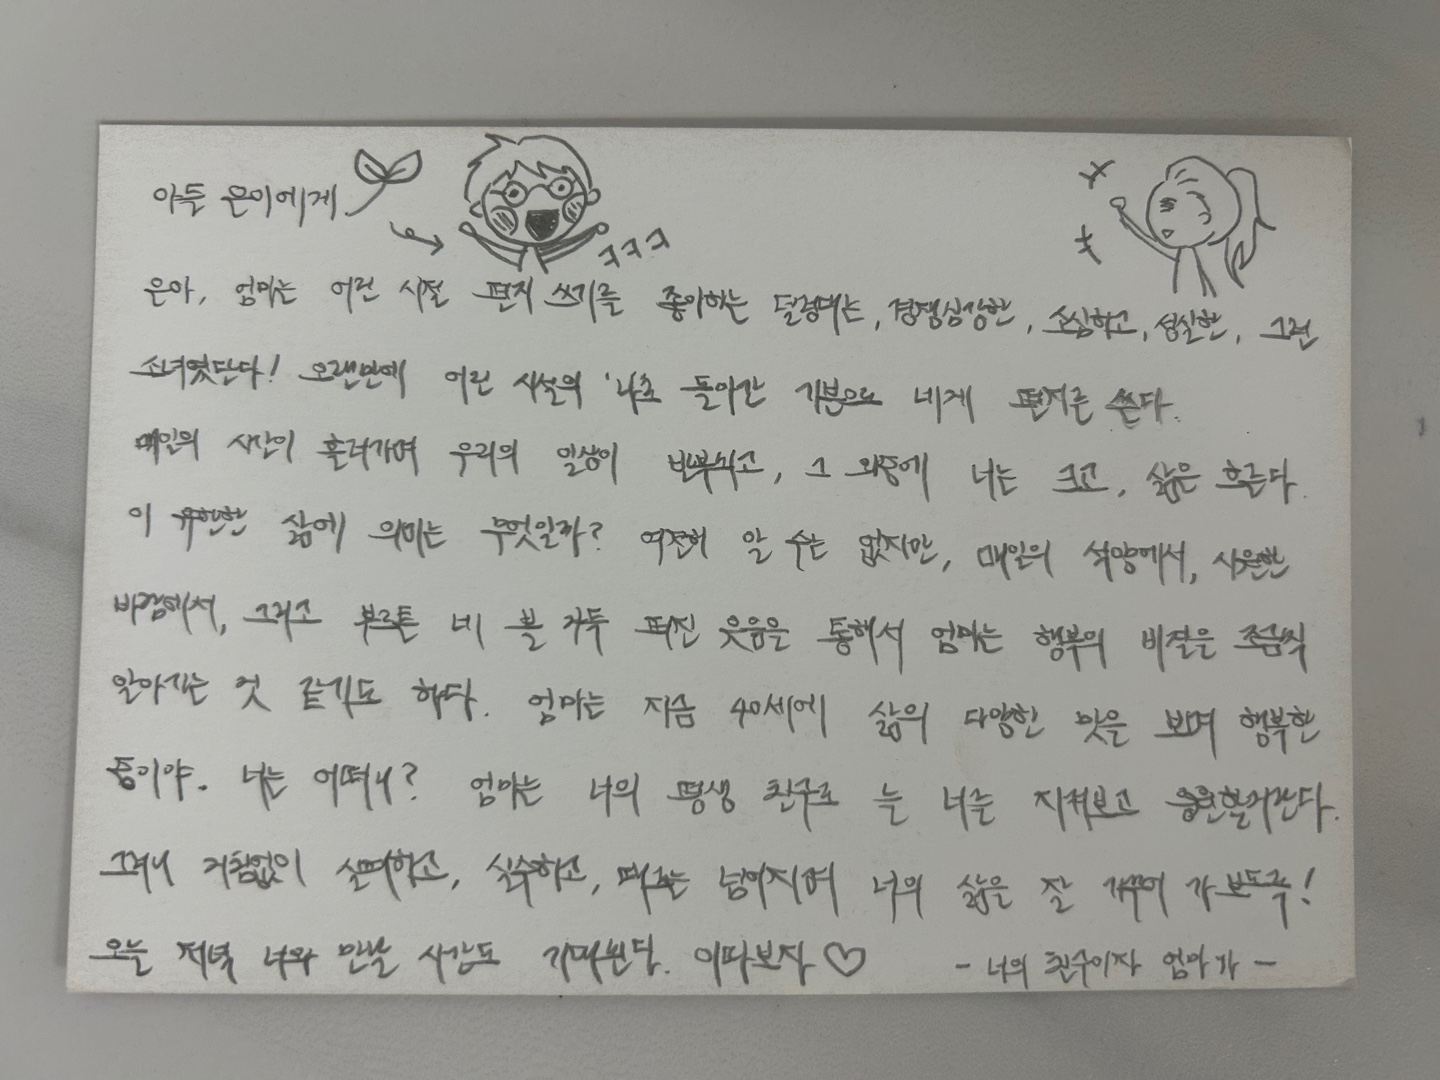 아들 은이에게
ㅋㅋㅋ
은아, 엄마는 어린 시절 편지 쓰기를 좋아하는 덜렁대는, 경쟁심강한, 소심하고, 성실한, 그런
소녀였단다! 오랜만에 어린 시절의 나로 돌아간 기분으로 네게 편지를 쓴다.
매일의 시간이 흘러가며 우리의 일상이 반복되고, 그 와중에 너는 크고, 삶은 흐른다.
이 유한한 삶에 의미는 무엇일까? 여전히 알 수는 없지만, 매일의 석양에서, 시원한
바람에서, 그리고 부르튼 네 볼 가득 퍼진 웃음을 통해서 엄마는 행복의 비결을 조금씩
알아가는 것 같기도 하다. 엄마는 지금 40세에 삶의 다양한 맛을 보며 행복한
중이야. 너는 어떠니? 엄마는 너의 평생 친구로 늘 너를 지켜보고 응원할거란다.
그러니 거침없이 실패하고, 실수하고, 때로는 넘어지며 너의 삶을 잘 가꾸어 가 보도록!
오늘 저녁 너와 만날 시간도 기대된다. 이따보자♡ - 너의 친구이자 엄마가 -